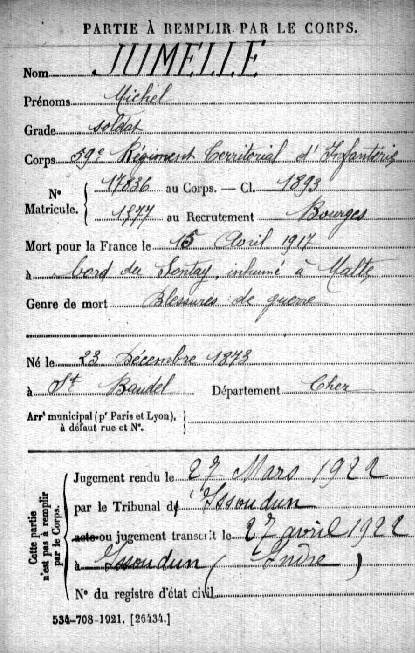 PARTIE À REMPLIR PAR LE CORPS.
Nom JUMELLE
Prénoms Michel
Grade soldat
Corps 59e Régiment Territorial d'Infanterie
No Matricule. { 17836 au Corps. — Cl. 1893
1377 au Recrutement Bourges
Mort pour la France le 15 Avril 1917
à bord du Sontay, inhumé à Malte
Genre de mort Blessures de guerre
Né le 23 Décembre 1873
à St Baudel Département Cher
Arrt municipal (pr Paris et Lyon),
à défaut rue et No.
Cette partie n'est pas à remplir par le Corps.
Jugement rendu le 27 Mars 1922
par le Tribunal d'Issoudun
acte ou jugement transcrit le 27 avril 1922
à Issoudun (Indre)
No du registre d'état civil
534-708-1921. [26434.]